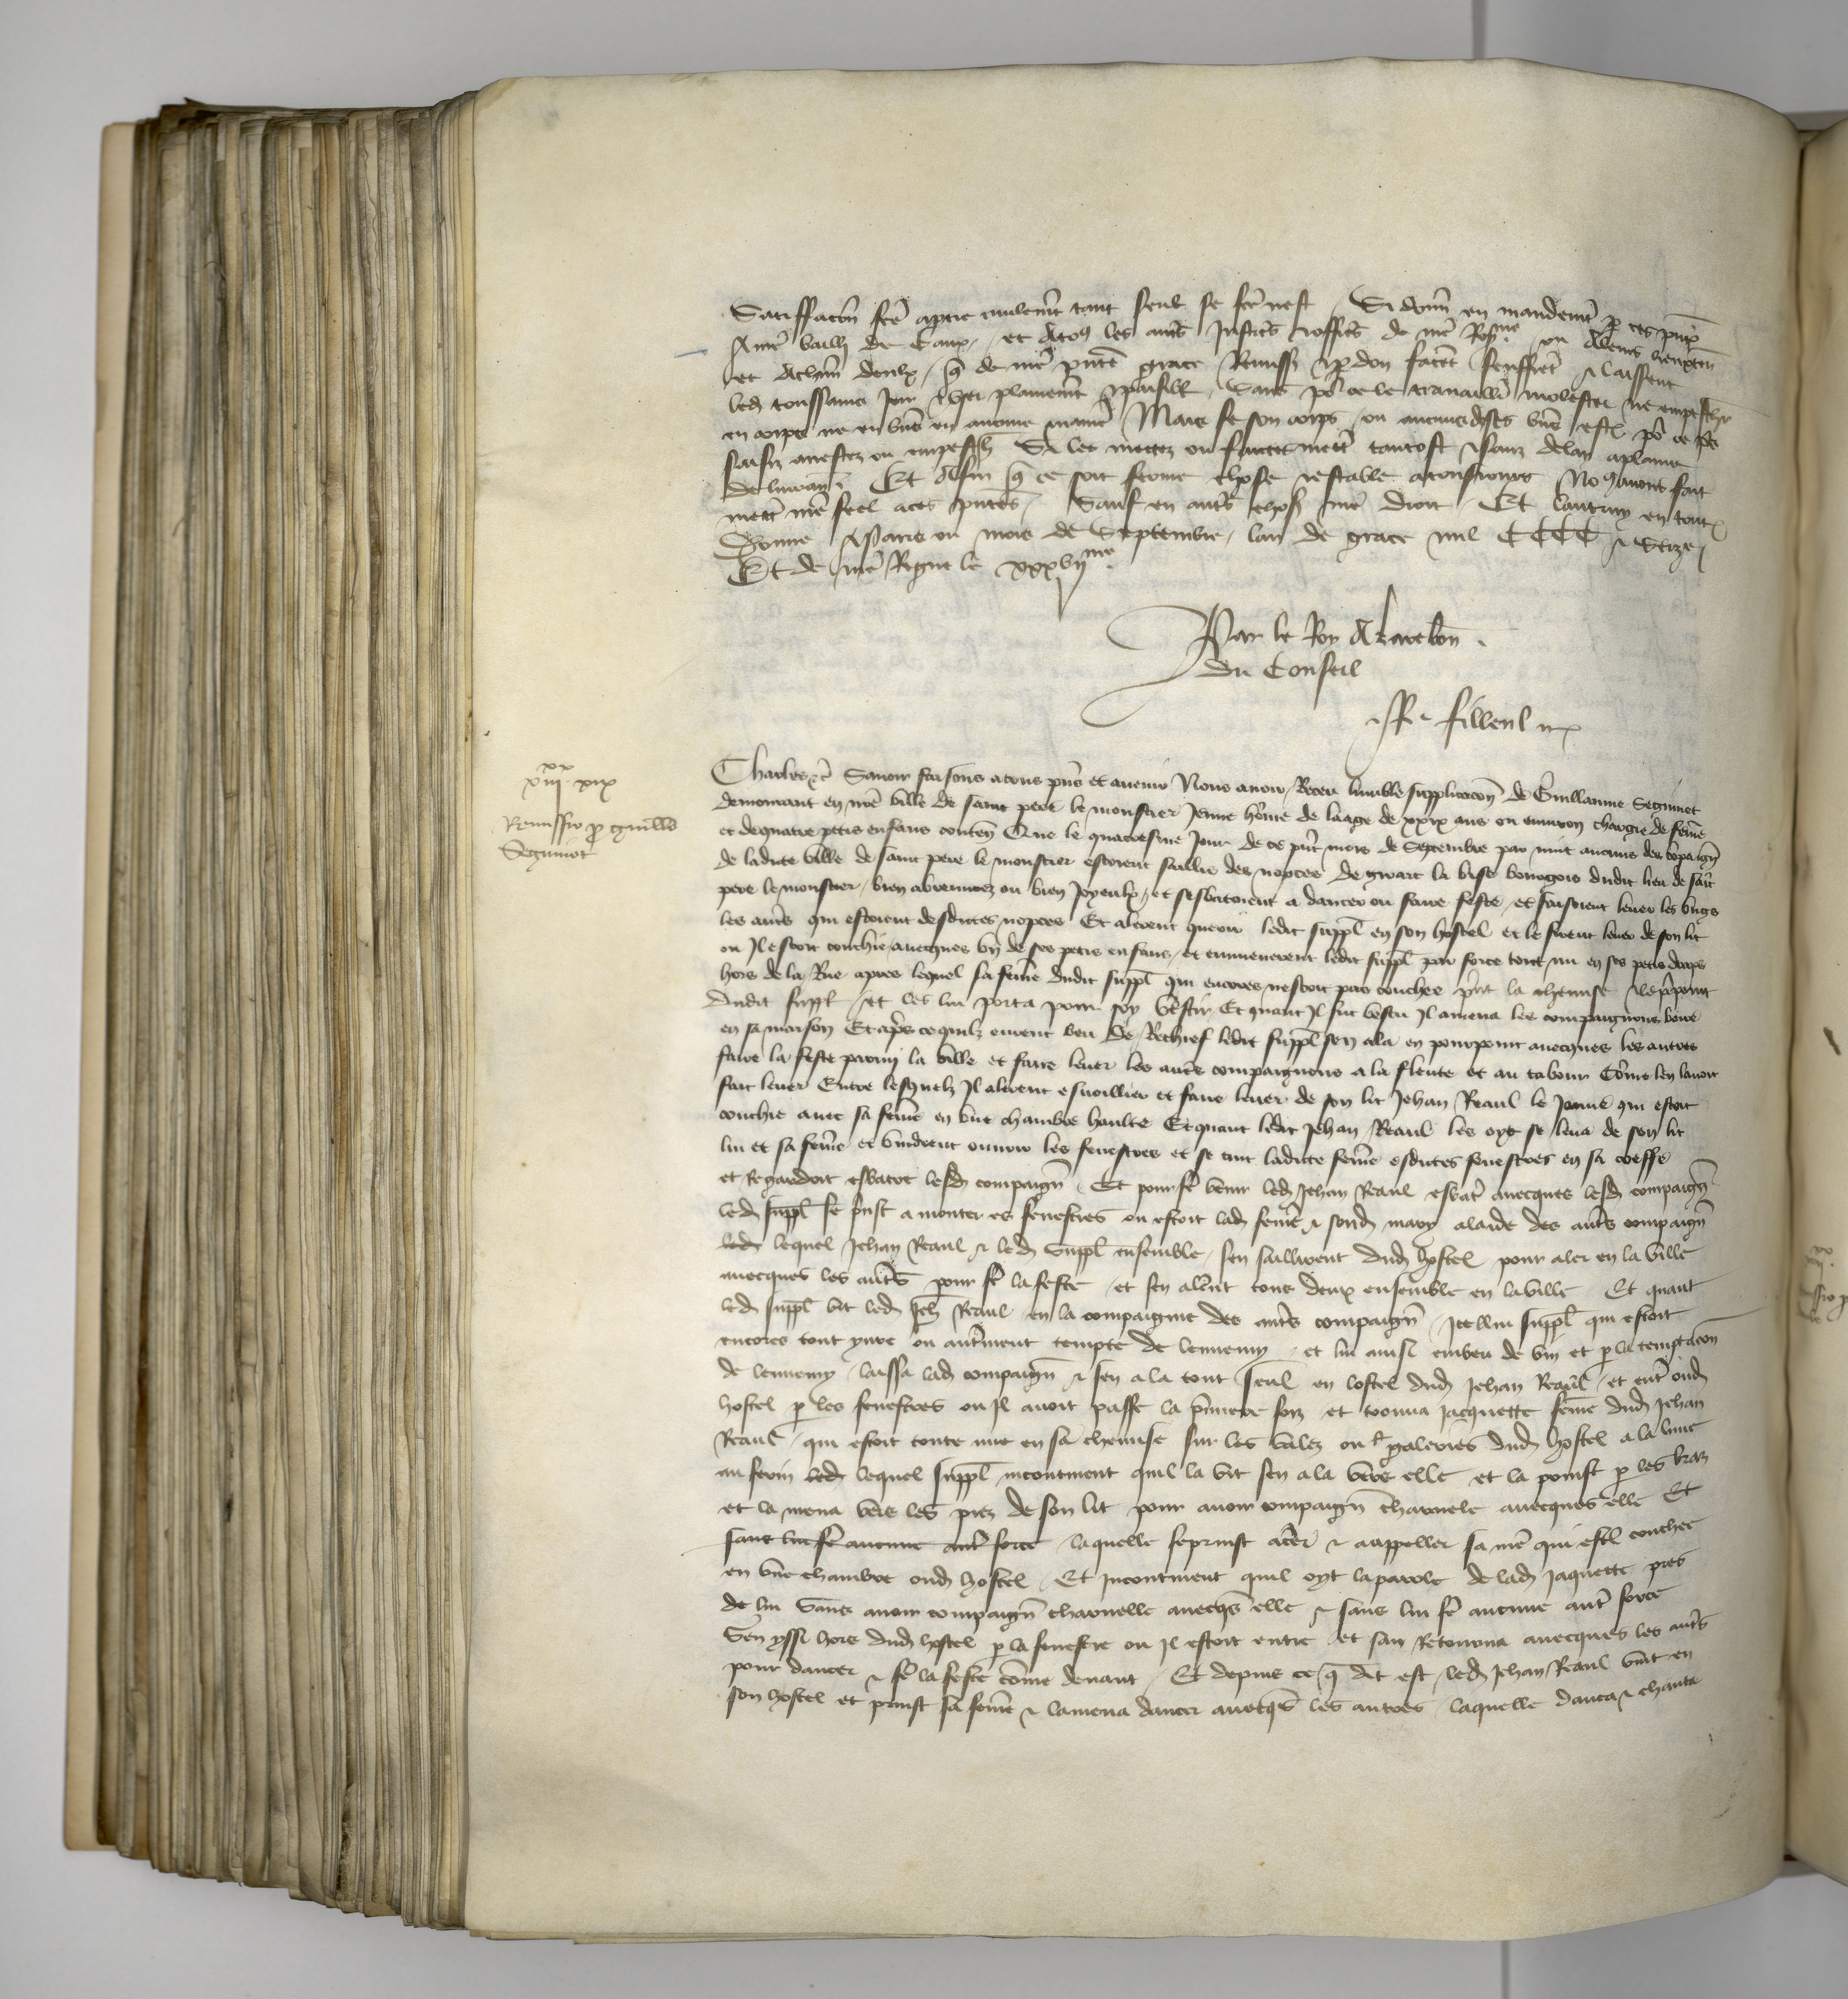 Satisffacion fcē a partie civilemt tant seult se fcē nest Si donn̄ en mandemt p ces pn̄tes
A nr̄e bailli de Caux et a toꝯ les aut̄s justic̄s & offic̄s de nr̄e Royme ou a leurs lieuxten̄
et a chūn deulx q̄ de nr̄e pn̄te grace Remissiō & pdon facēt seuffrēt & laissent
led toussains joir & user plainemt & paisiblt Sans po ce le travaillier molester ne empeschr̄
en corps ne en biēs en aucune manie Mais se son corps ou aucuns de ses biēs estoiēt po ce pr̄s
saisiz arrestez ou empeschiez Si les mettez ou faictes mettr̄ tantost & sanz delay a plaine
delivrance Et afin q̄ ce soit ferme chose & estable a tousjours Noꝯ avons fait
mettr̄ nr̄e seel a ces pn̄tes Sauf en aut̄s choses nr̄e droit Et lautruy en toutes
Donne A Paris ou mois de Septembre lan de grace mil CCCC & seize
Et de nr̄e Regne le xxxvijme
Par le Roy A la relacōn
du Conseil
Filleul
xx
viii xix
Remissio p Guill̄o
Seguinot
Charles &c̄ Savoir faisons a tous pn̄s et avenir Nous avoir Receu lumble supplicacōn de Guillaume Seguinot
demourant en nr̄e ville de saint pere le monstier jeune hōme de laage de xxix ans ou environ chargie de fem̄e
et de quatre petis enfans conten̄ Que le quatresme jour de ce pn̄t mois de Septembre par nuit aucuns des cōpaign̄
de ladicte ville de saint pere le monstier estoient sailliz des nopces de girart la bise bourgois dudit lieu de saīt
pere le monstier bien abreuvez ou bien joyeulx et sesbatoient a dancer ou faire feste et faisoient lever les ungs
les aut̄s qui estoient desdictes nopces Et alerent querir ledit suppl̄ en son hostel et le firent lever de son lit
ou il estoit couchie avecques un de ses petis enfans et emmenerent ledit suppl̄ par force tout nu en ses petis draps
hors de la Rue apres lequel sa fem̄e dudit suppl̄ qui encores nestoit pas couchee prīt la chemise & le porpoint
dudit suppl̄ et les lui porta pour soy vestir Et quant il fut vestu il amena les compaignons boire
en sa maison Et apr̄s ce quilz eurent beu de Rechief ledit suppl̄ sen ala en pourpoint avecques les autres
faire la feste parmi la ville et faire lever les aut̄s compaignons a la fleute et au tabour Cōme len lavoit
fait lever Entre lesquelz il alerent esveillier et faire lever de son lit Jehan Reaul le jeune qui estoit
couchie avec sa fem̄e en une chambre haulte Et quant ledit Jehan Reaul les oyt se leva de son lit
lui et sa fem̄e et vindrent ouvrir les fenestres et se tint ladicte fem̄e esdictes fenestres en sa coeffe
et Regardoit esbatre lesd compaign̄ Et pour fr̄e venir led Jehan Reaul esbatr̄ avecques lesd compaign̄
led suppl̄ se prist a monter es fenestres ou estoit lad fem̄e & sond mary a laide des aut̄s compaign̄
led lequel Jehan Reaul & led Suppl̄ ensemble sen saillirent dud hostel pour aler en la ville
avecques les aut̄s pour fr̄e la feste et sen alerēt tous deux ensemble en la ville Et quant
led suppl̄ vit led Jeh̄ Reaul en la compaignie des aut̄s compaign̄ Icellui suppl̄ qui estoit
encores tout yvre ou aut̄ment tempte de lennemy et lui ainsi embeu de vin et p la temptacōn
de lennemy laissa lad compaign̄ & sen ala tout seul en lostel dud Jehan Reaul et entra oud
hostel p les fenestres ou il avoit passe la p̄miere foiz et trouva Jacquette fem̄e dud Jehan
Reaul qui estoit toute nue en sa chemise sur les alez ou galeries dud hostel a la lune
au serin led lequel suppl̄ incontinent quil la vit sen ala vers elle et la poinst p les braz
et la mena vers les piez de son lit pour avoir compaign̄ charnele avecques elle Et
sans lui fr̄e aucune autr̄ force laquelle se prinst a crier & a appeller sa mer̄e qui estoit couchee
en une chambre oud hostel Et incontinent quil oyt la parole de lad Jaquette pres
de lui Sans avoir compaign̄ charnelle avecqs elle & sans lui fr̄e aucune autr̄ force
Sen yssi hors dud hostel p la fenestre ou il estoit entre et san Retourna avecques les aut̄s
pour dancer & fr̄e la feste cōme devant Et depuis ce q̄ dit est led Jehan Reaul vint en
son hostel et prinst sa fem̄e & lamena dancer avecqs les autres laquelle danca & chanta